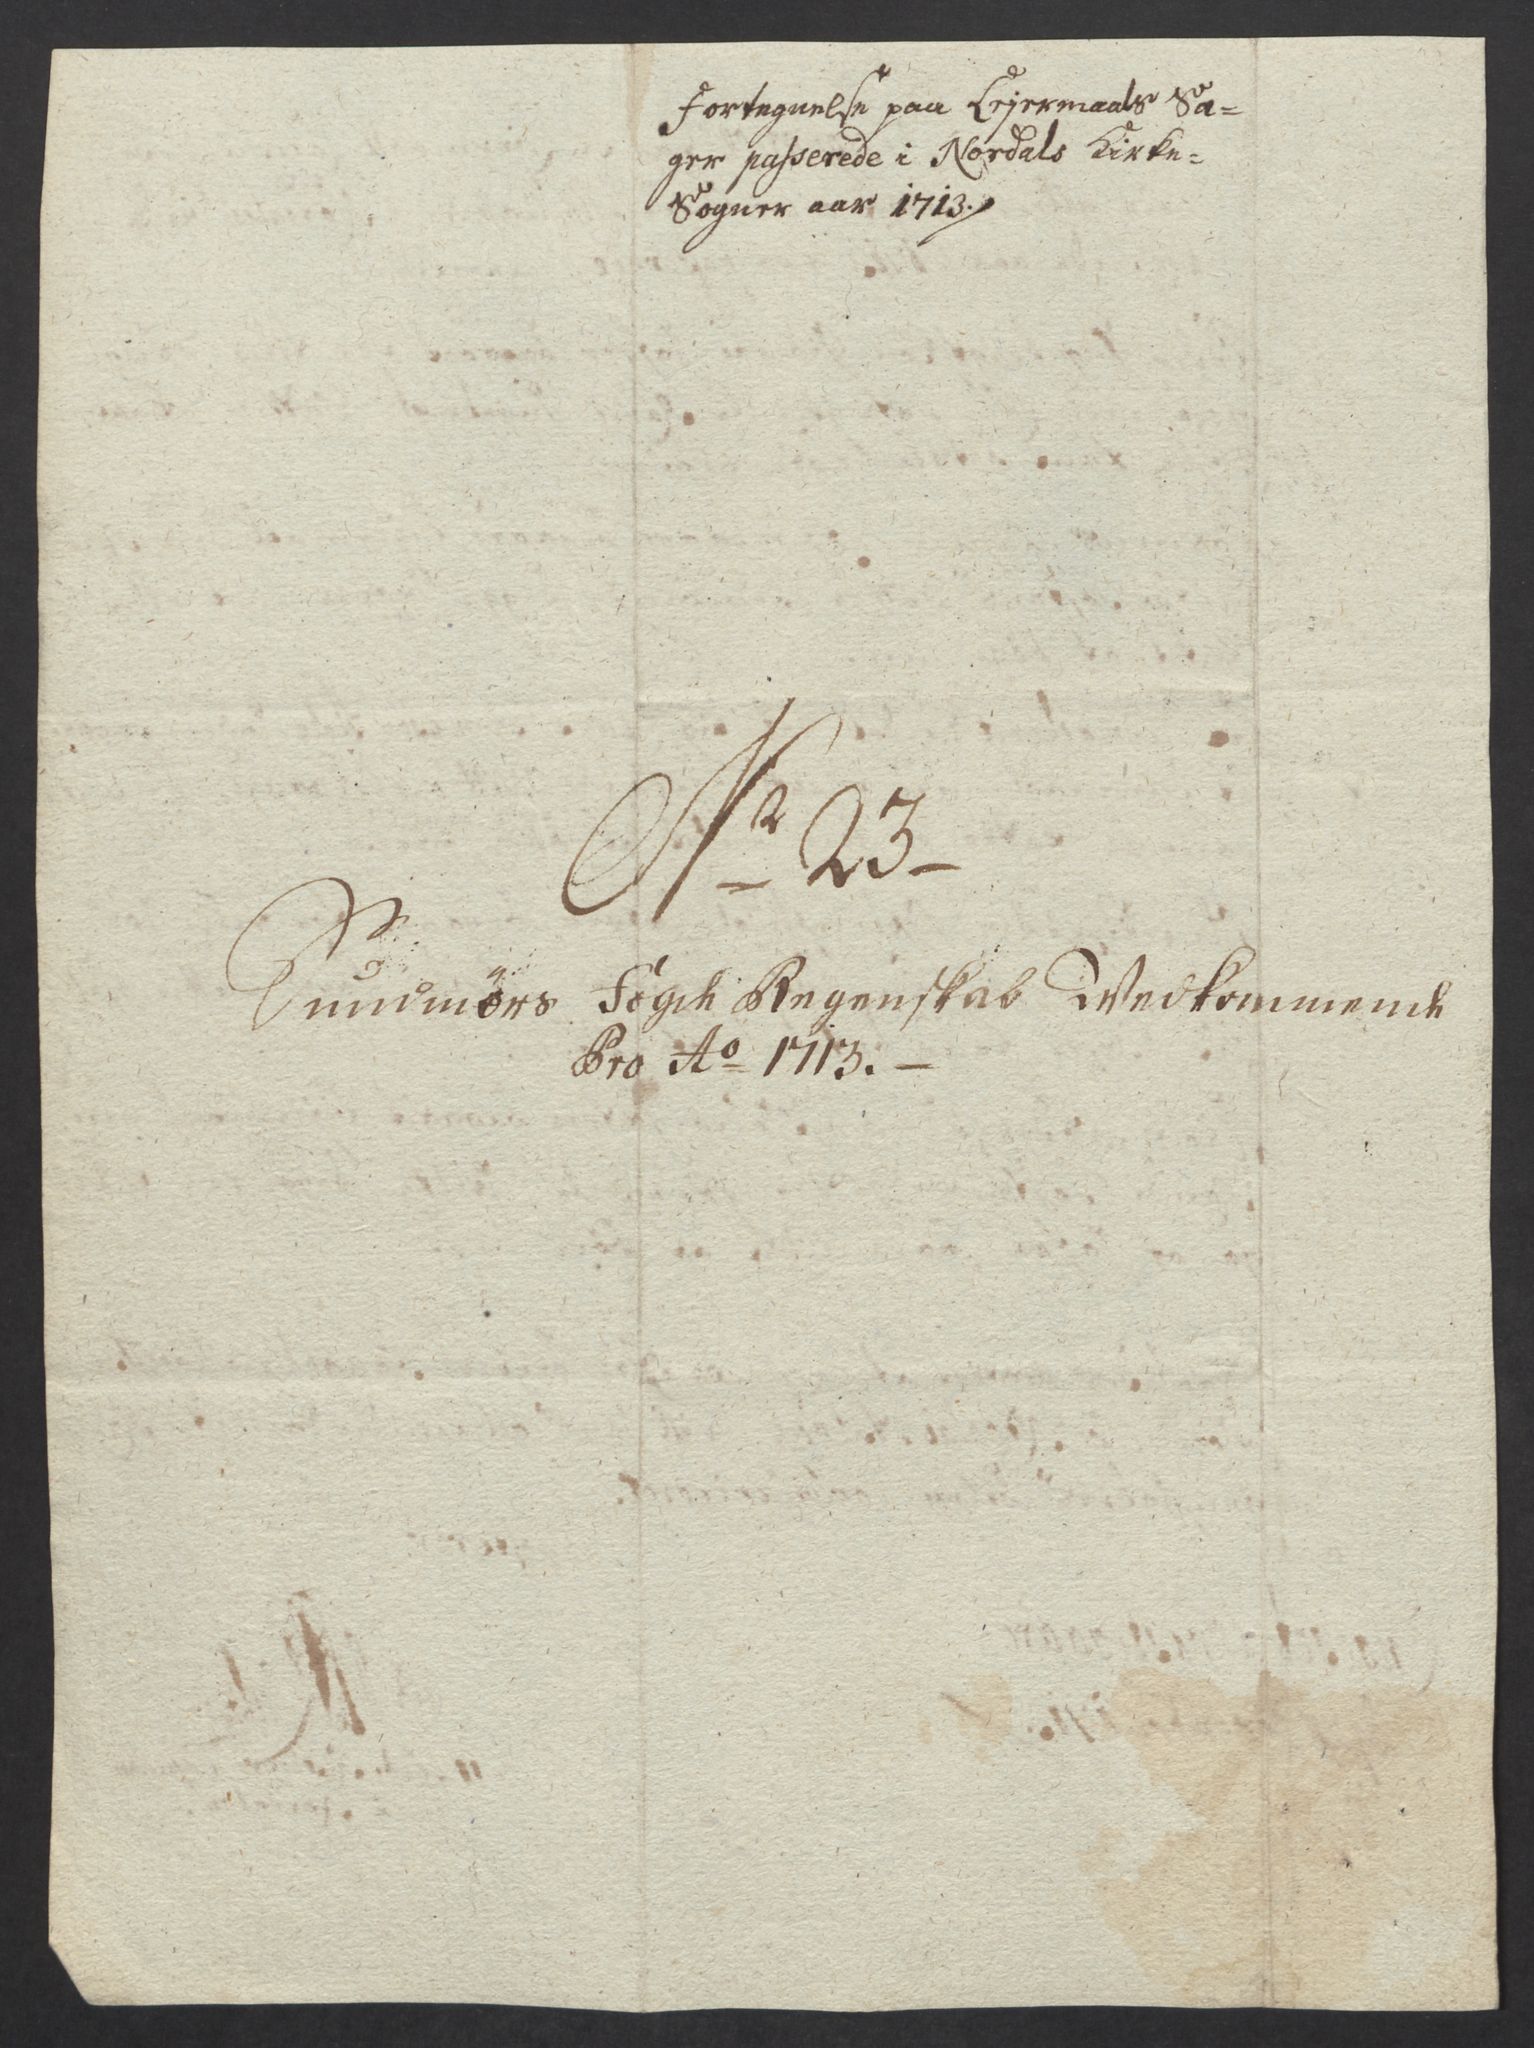 Fortegnelse paa Lejermaals Sa=
ger passerede i Nordals Kirke=
Sogner aar 1713.
No 23
Sundmörs Fögde Regenskab Wedkommende
Pro Ao 1713.